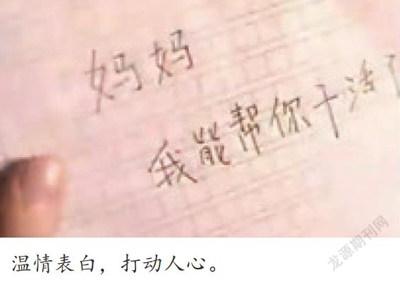 妈妈
我能帮你干活了
温情表白，打动人心。
龙源期刊网